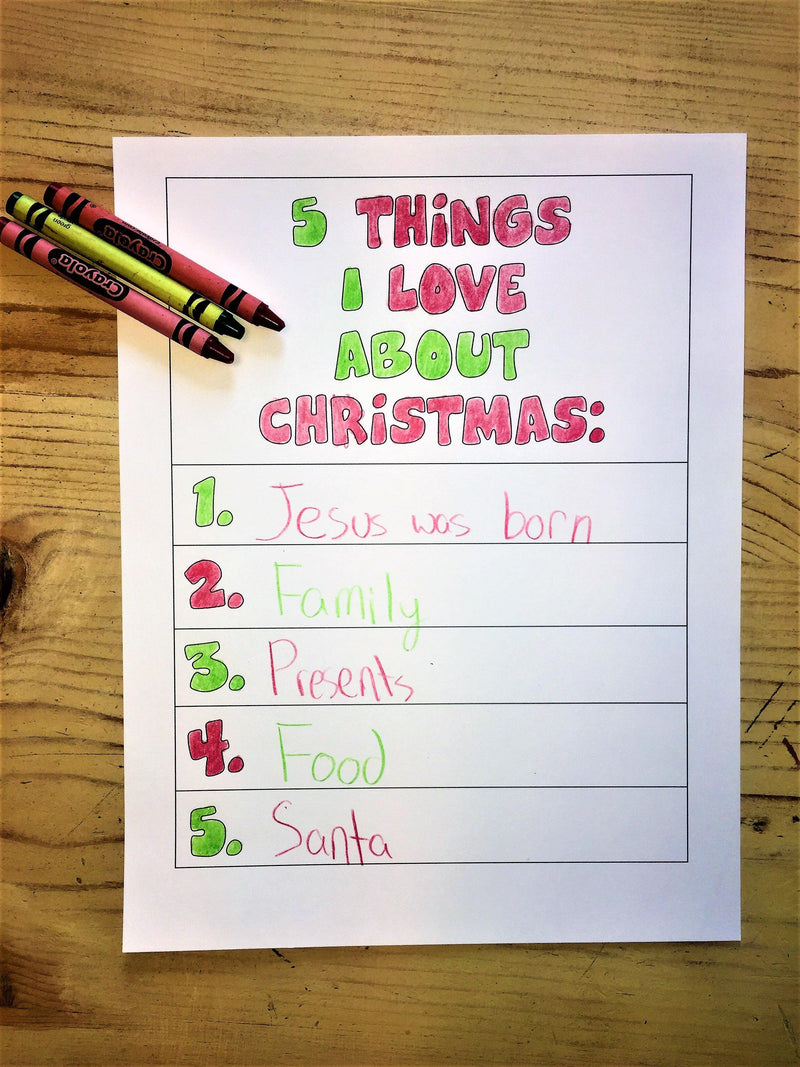 5 THiNGS
I LOVE
ABOUT
CHRiSTMAS:
1. Jesus was born
2. Family
3. Presents
4. Food
5. Santa
Crayola
green
Crayola